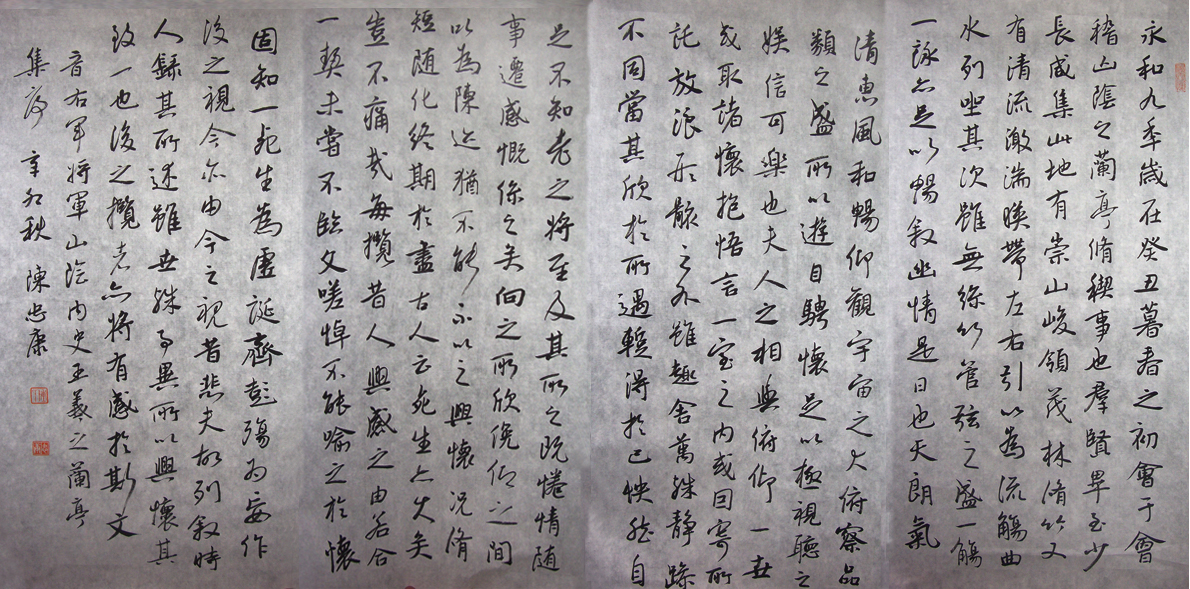 永和九季歲在癸丑暮春之初會于會
稽山陰之蘭亭脩稧事也羣賢畢至少
長咸集此地有崇山峻領茂林脩竹又
有清流激湍暎帶左右引以為流觴曲
水列坐其次雖無絲竹管弦之盛一觴
一詠亦足以暢敘幽情是日也天朗氣
清惠風和暢仰觀宇宙之大俯察品
類之盛所以遊目騁懷足以極視聽之
娛信可樂也夫人之相與俯仰一世
或取諸懷抱悟言一室之內或因寄所
託放浪形骸之外雖趣舍萬殊靜躁
不同當其欣於所遇蹔得於己怏然自
足不知老之將至及其所之既惓情隨
事遷感慨係之矣向之所欣俛仰之間
以為陳迹猶不能不以之興懷況脩
短隨化終期於盡古人云死生亦大矣
豈不痛哉每攬昔人興感之由若合
一契未嘗不臨文嗟悼不能喻之於懷
固知一死生為虛誕齊彭殤為妄作
後之視今亦由今之視昔悲夫故列敘時
人錄其所述雖世殊事異所以興懷其
致一也後之攬者亦將有感於斯文
晉右軍將軍山陰內史王羲之蘭亭
集序 辛卯秋 陳忠康